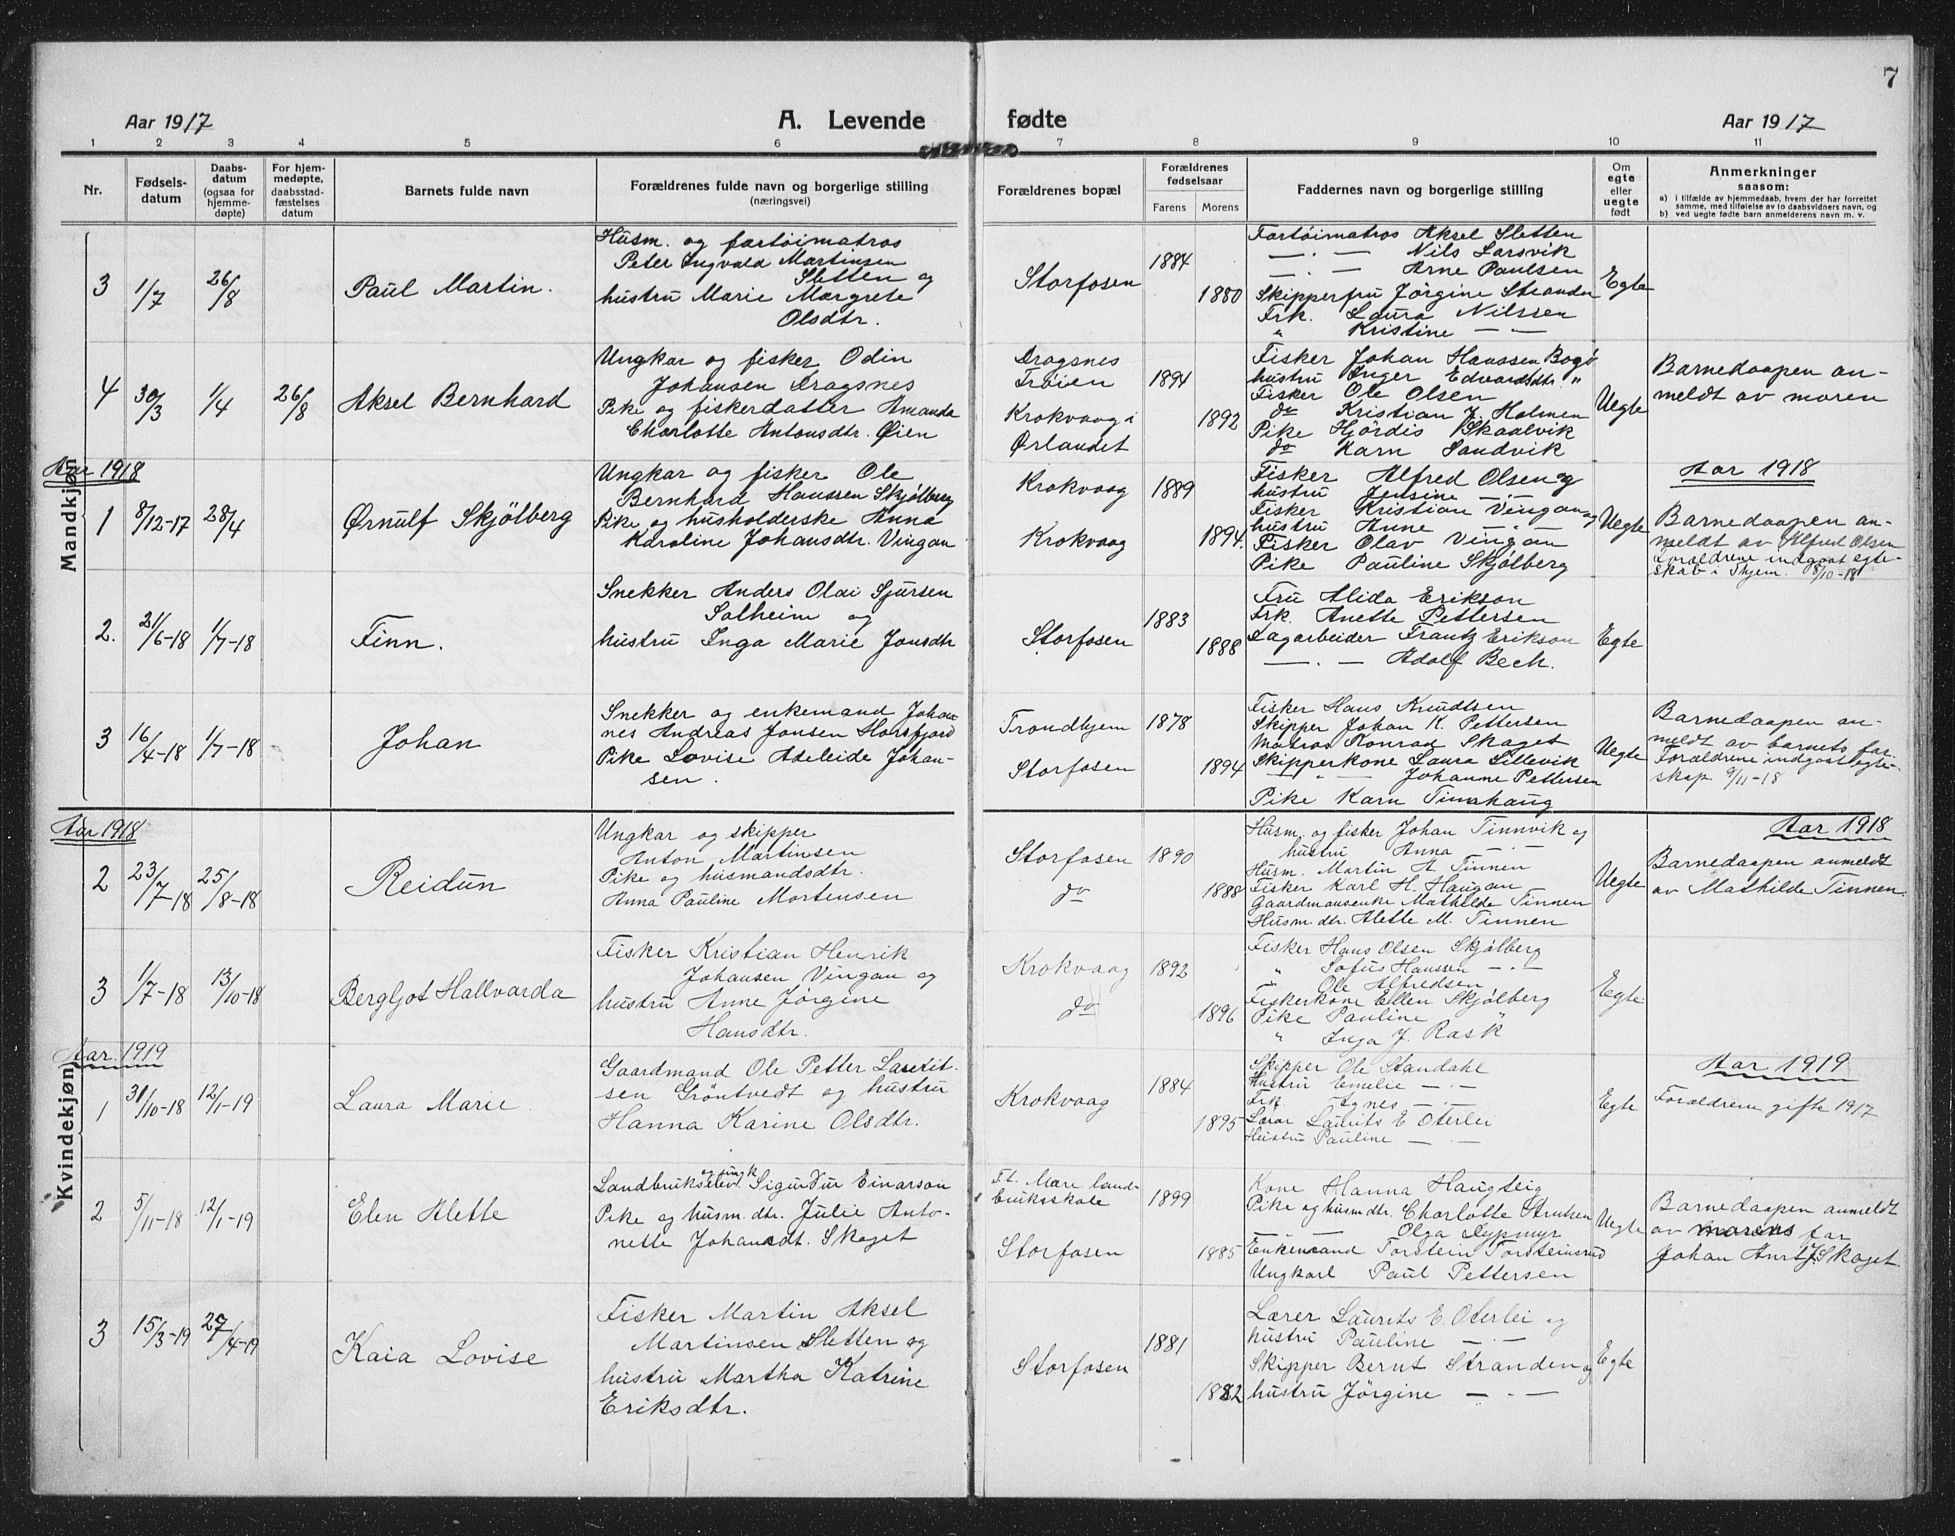 7
Aar 1917
A. Levende
fødte
Aar 1917
1 2 3 4 5 6 7 8 9 10 11
Nr.
Fødsels-
datum
Daabs-
datum
(ogsaa for
hjemme-
døpte)
For hjem-
medøpte,
daabsstad-
fæstelses
datum
Barnets fulde navn
Forældrenes fulde navn og borgerlige stilling
(næringsvei)
Forældrenes bopæl
Forældrenes
fødselsaar
Farens
Morens
Faddernes navn og borgerlige stilling
Om
egte
eller
uegte
født
Anmerkninger
saasom:
a) i tilfælde av hjemmedaab, hvem der har forrettet
samme, med tilføielse av to daabsvidners navn, og
b) ved uegte fødte barn anmelderens navn m. v.
Mandkjøn
3
1/7
26/8
Paul Martin.
Husm. og fartøimatros
Peter Ingvald Martinsen
Sletten og
hustru Marie Margrete
Olsdtr.
Storfosen
1884
1880
Fartøimatros Aksel Sletten
— . — Nils Larsvik
— . — Arne Paulsen
Skipperfru Jörgine Stranden
Frk. Laura Nilssen
" Kristine — —
Egte
4
30/3
1/4
26/8
Aksel Bernhard
Ungkar og fisker Odin
Johansen Dragsnes
Pike og fiskerdatter Amanda
Charlotte Antonsdtr. Øien
Dragsnes
Frøien
Krokvaag i
Ørlandet
1894
1892
Fisker Johan Hanssen Bogö
hustru Inger Edvardsdtr "
Fisker Ole Olsen
do Kristian J. Holmen
Pike Hjördis Skaalvik
do Karn Sandvik
Uegte
Barnedaapen an-
meldt av moren
Aar 1918
1
8/12-17
28/4
Ørnulf Skjölberg
Ungkar og fisker Ole
Bernhard Hanssen Skjölberg
Pike og husholderske Anna
Karoline Johansdtr. Vingan
Krokvaag
Krokvaag
1889
1894.
Fisker Alfred Olsen og
hustru Jensine — . —
Fisker Kristian Vingan og
hustru Anne — . —
Fisker Olav Vingan
Pike Pauline Skjölberg
Uegte
Aar 1918
Barnedaapen an-
meldt av Alfred Olsen
Forældrene indgaat egte-
skab i Thjem. 8/10-18
2.
21/6-18
1/7-18
Finn.
Snekker Anders Olai Sjursen
Solheim og
hustru Inga Marie Jonsdtr
Storfosen
1883
1888
Fru Alida Erikson
Frk. Anette Pettersen
Lagarbeider Frantz Erikson
— . — Adolf Bech.
Egte
3
16/4-18
1/7-18
Johan
Snekker og enkemand Johan-
nes Andreas Jonsen Horsfjord
Pike Lovise Adeleide Johan-
sen.
Trondhjem
Storfosen
1878
1894
Fisker Hans Knudtsen
Skipper Johan K. Pettersen
Matros Konrad Skaget
Skipperkone Laura Lillevik
— " — Johanne Pettersen
Pike Karn Timshaug
Uegte
Barnedaapen an-
meldt av barnets far
Forældrene indgaat egte-
skap 9/11-18
Kvindekjøn
Aar 1918
2
23/7-18
25/8-18
Reidun
Ungkar og skipper
Anton Martinsen
Pike og husmandsdtr.
Anna Pauline Mortensen
Storfosen
do
1890
1888
Husm. og fisker Johan Tinnvik og
hustru Anna — . —
Husm. Martin A. Tinnen
Fisker Karl H. Haugan
Gaardmansenke Mathilde Tinnen
Husm.dtr. Alette M. Tinnen
Uegte
Aar 1918
Barnedaapen anmeldt
av Mathilde Tinnen.
3
1/7-18
13/10-18
Bergljot Hallvarda
Fisker Kristian Henrik
Johansen Vingan og
hustru Anne Jörgine
Hansdtr.
Krokvaag
do
1892
1896
Fisker Hans Olsen Skjölberg
" Sofus Hanssen — . —
" Ole Alfredsen
Fiskerkone Ellen Skjölberg
Pike Pauline "
" Inga J. Rask
Egte
Aar. 1919
1
31/10-18
12/1-19
Laura Marie
Gaardmand Ole Petter Laurit-
sen Gröntvedt og hustru
Hanna Karine Olsdtr.
Krokvaag
1884
1895
Skipper Ole Standahl
Hustru Emelie — . —
Frk. Agnes — . —
Lærer Laurits E Oterlei
Hustru Pauline — . —
Egte
Aar 1919
Forældrene gifte 1917
2
5/11-18
12/1-19
Elen Alette
Landbrukselev og ungk. Sigurdur Einarson
Pike og husm.dtr. Julie Anto-
nette Johansdt. Skaget
Storfosen
1899
1885
Kone Hanna Haugteig
Pike og husmdtr. Charlotte
Olga
Enkemand Torstein Torsteinsrud
Ungkarl Paul Pettersen
Uegte
Barnedaapen anmeldt
av morens far
Johan Skaget.
3
15/3-19
27/4-19
Kaia Lovise
Fisker Martin Aksel
Martinsen Sletten og
hustru Martha Katrine
Eriksdtr.
Storfosen
1881
1882
Lærer Laurits E. Oterlei og
hustru Pauline — . —
Skipper Bernt Stranden og
hustru Jörgine — . —
Egte